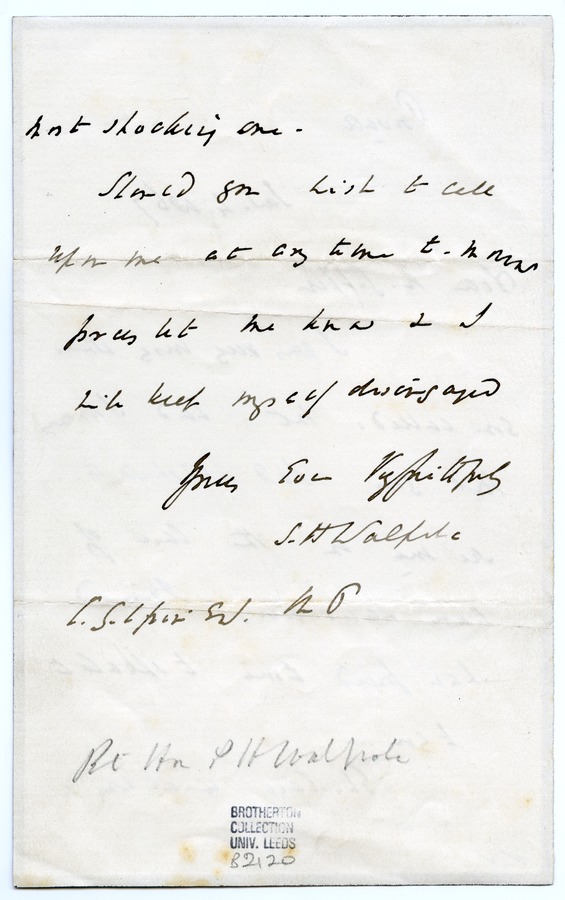 most shocking one -
Should you wish to call
upon me at any time to-morrow
pray let me know & I
will keep myself disengaged
Yours Ever Vy faithfully
S. H Walpole
C. Gilpin Esq. M P
Rt Hon S H Walpole
BROTHERTON
COLLECTION
UNIV. LEEDS
B2120